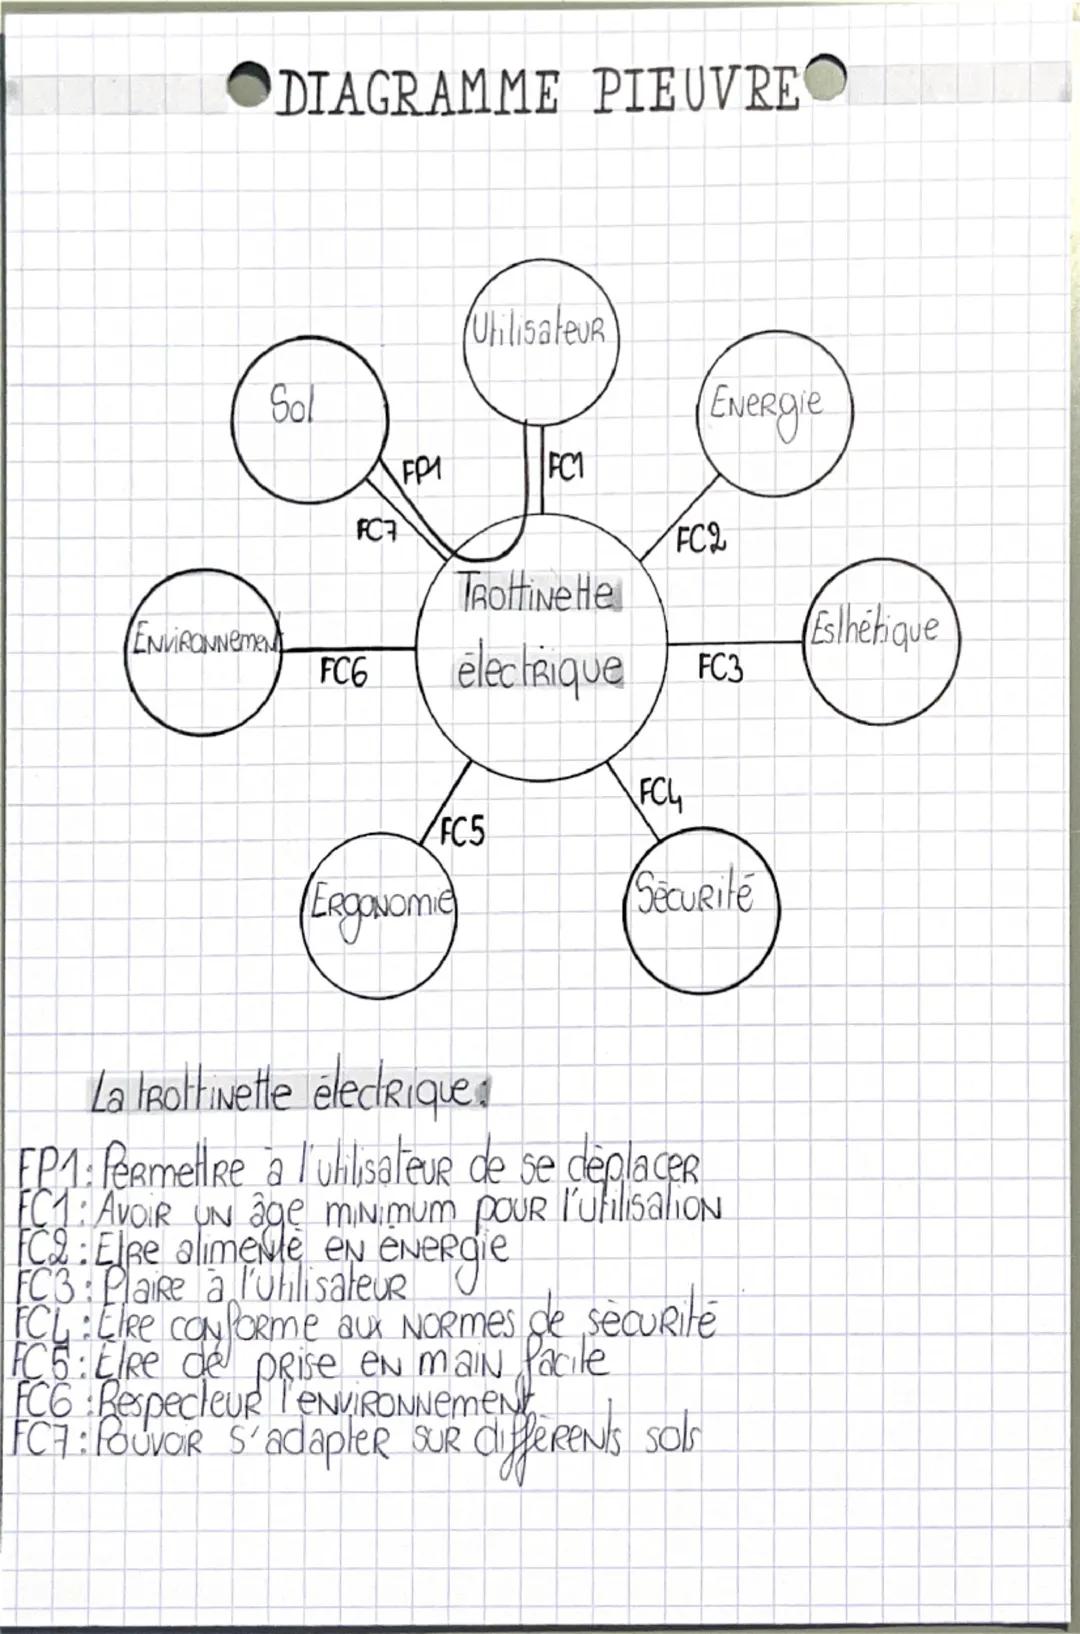 DIAGRAMME PIEUVRE
Utilisateur
Sol
Energie
FP1
FC1
FC7
FC2
Trottinette
électrique
Environnement
Esthétique
FC6
FC3
FC4
FC5
Ergonomie
Sécurité
La trottinette électrique:
FP1: Permettre à l'utilisateur de se déplacer
FC1: Avoir un âge minimum pour l'utilisation
FC2: Etre alimenté en énergie
FC3: Plaire à l'utilisateur
FC4: Etre conforme aux normes de sécurité
FC5: Etre de prise en main facile
FC6: Respecteur l'environnement
FC7: Pouvoir s'adapter sur différents sols